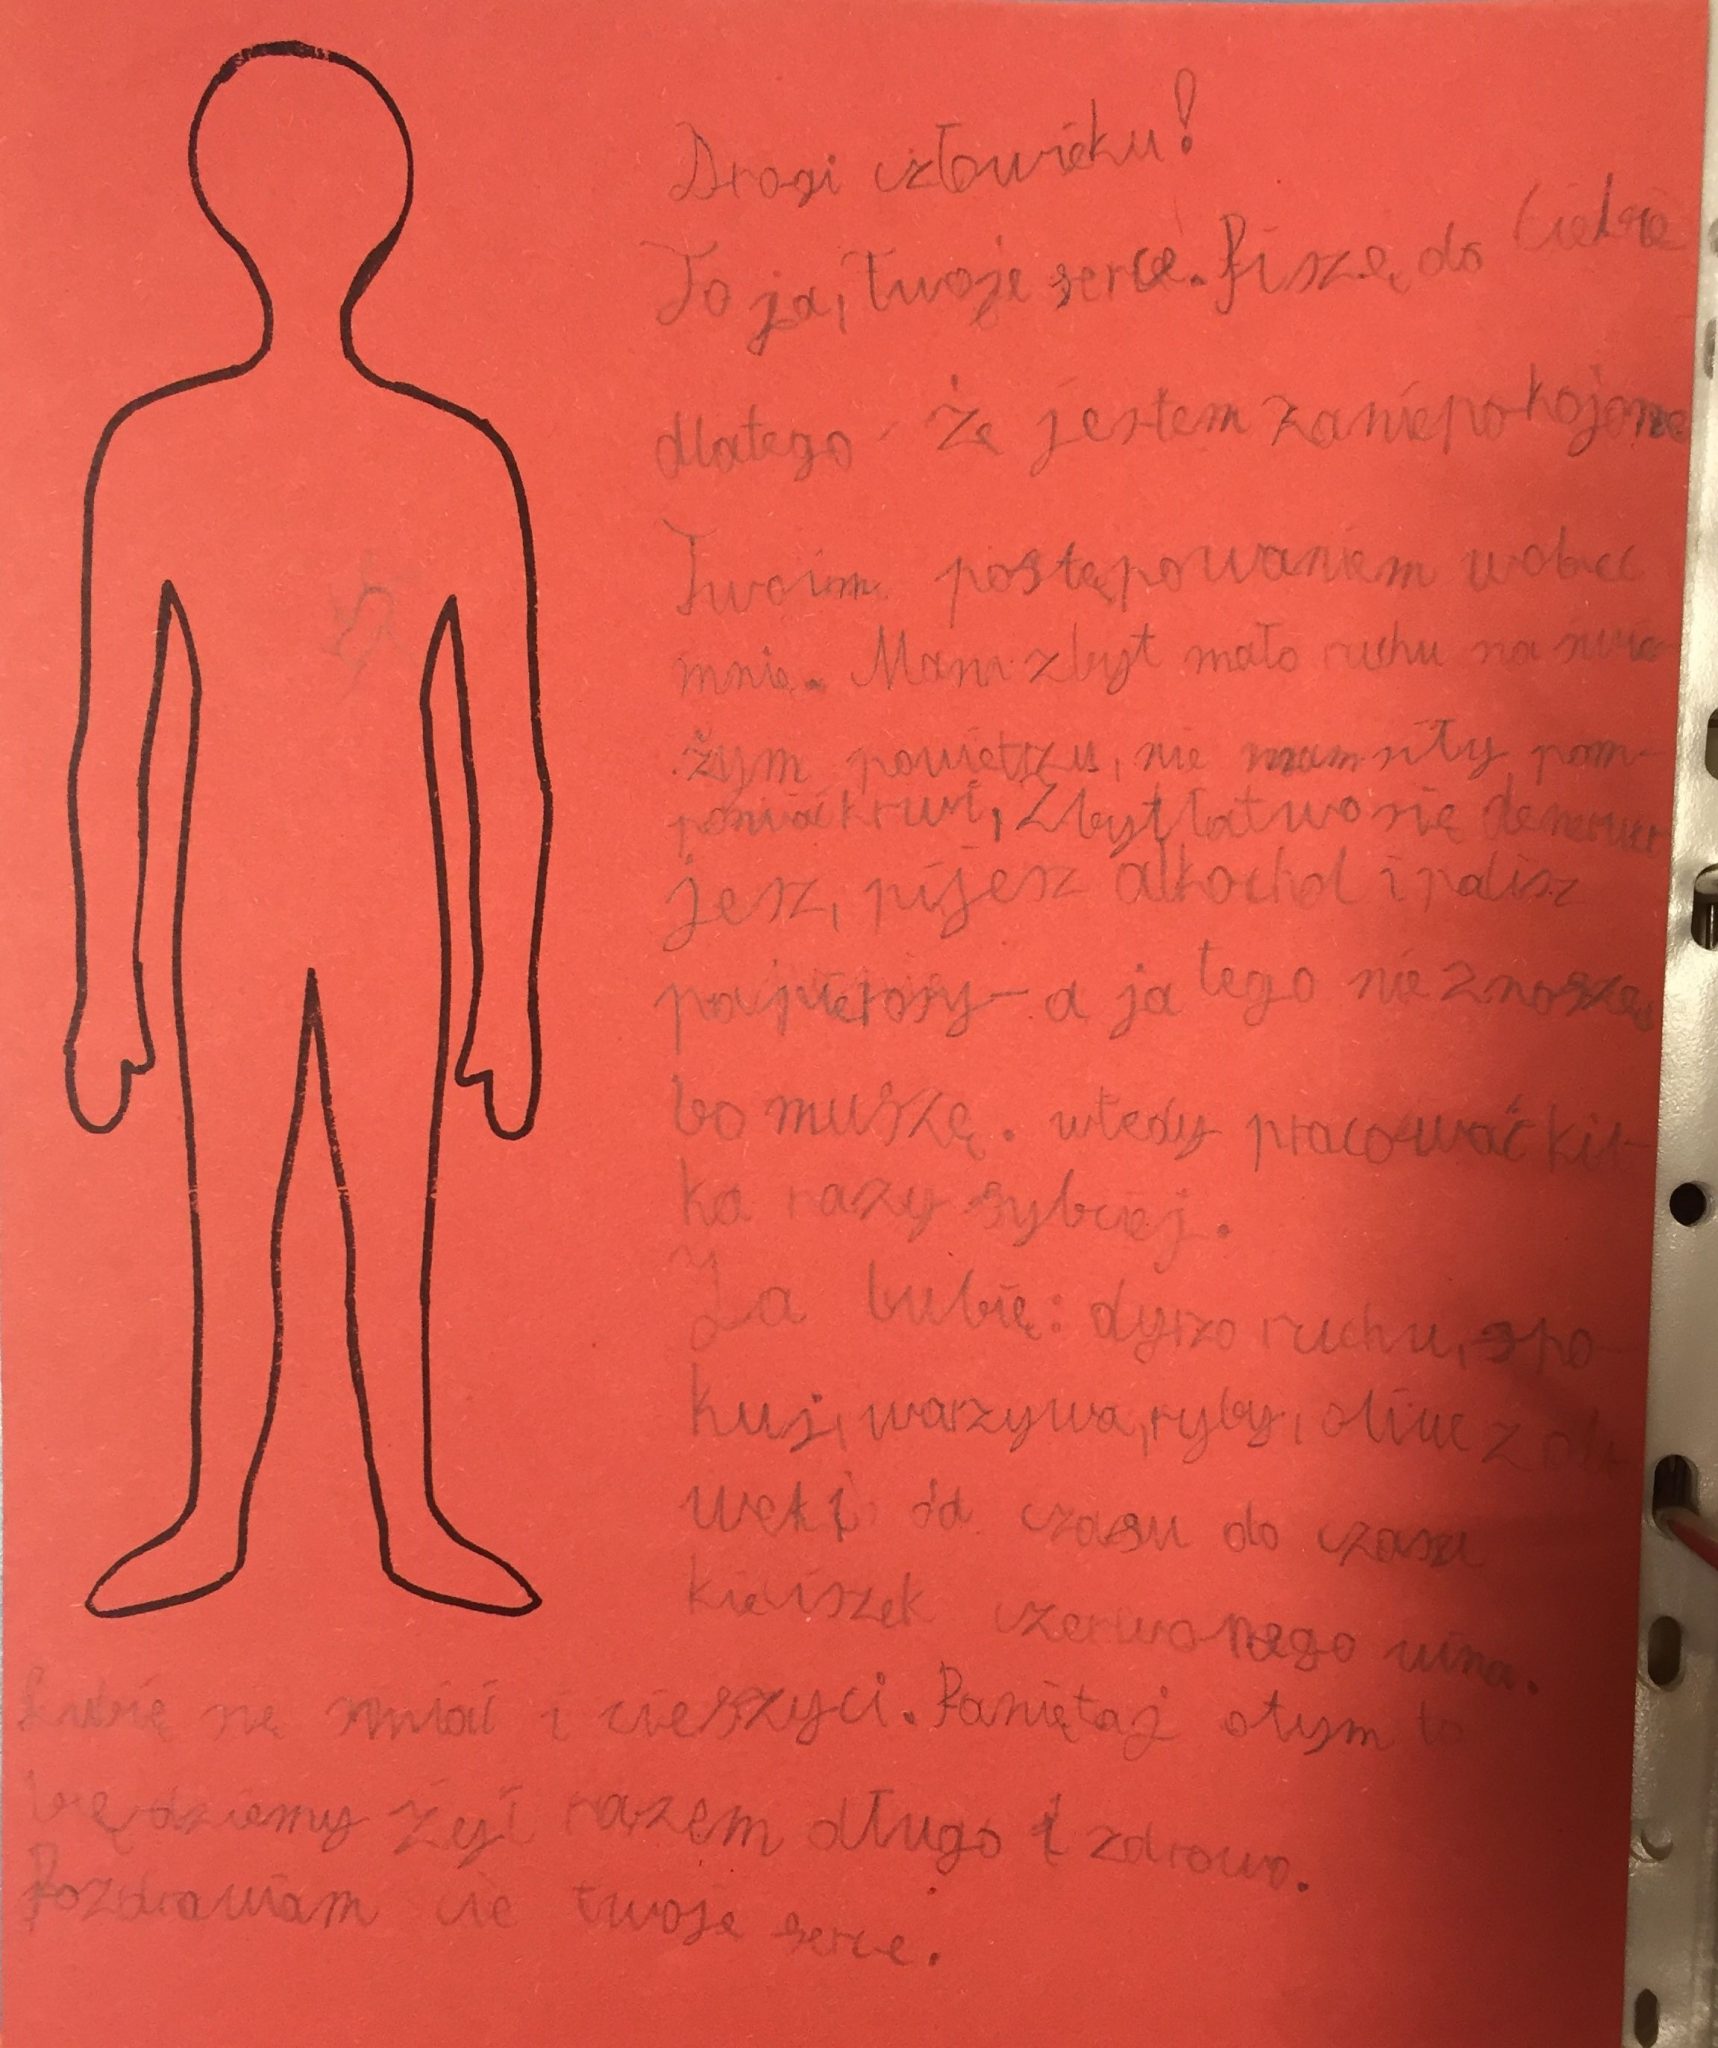 Drogi człowieku!
To ja, twoje serce. Piszę do Ciebie
dlatego że jestem zaniepokojone
Twoim postępowaniem wobec
mnie. Mam zbyt mało ruchu na świe-
żym powietszu, nie mam siły pom-
powiać krwi, Zbyt łatwo się denerwu
jesz, pijesz alkochol i palisz
papierosy - a ja tego nie znoszę,
bo muszę. wtedy pracować kil-
ka razy sybciej.
Ja lubię: dyrzo ruchu, spo-
kuj, warzywa, ryby, oliwe z oli
wek i od czasu do czasu
kieliszek czerwonego wina.
Lubię się śmiać i cieszyci. Pamiętaj otym to
będziemy żyć razem długo i zdrowo.
Pozdrawiam cie twoje serce.